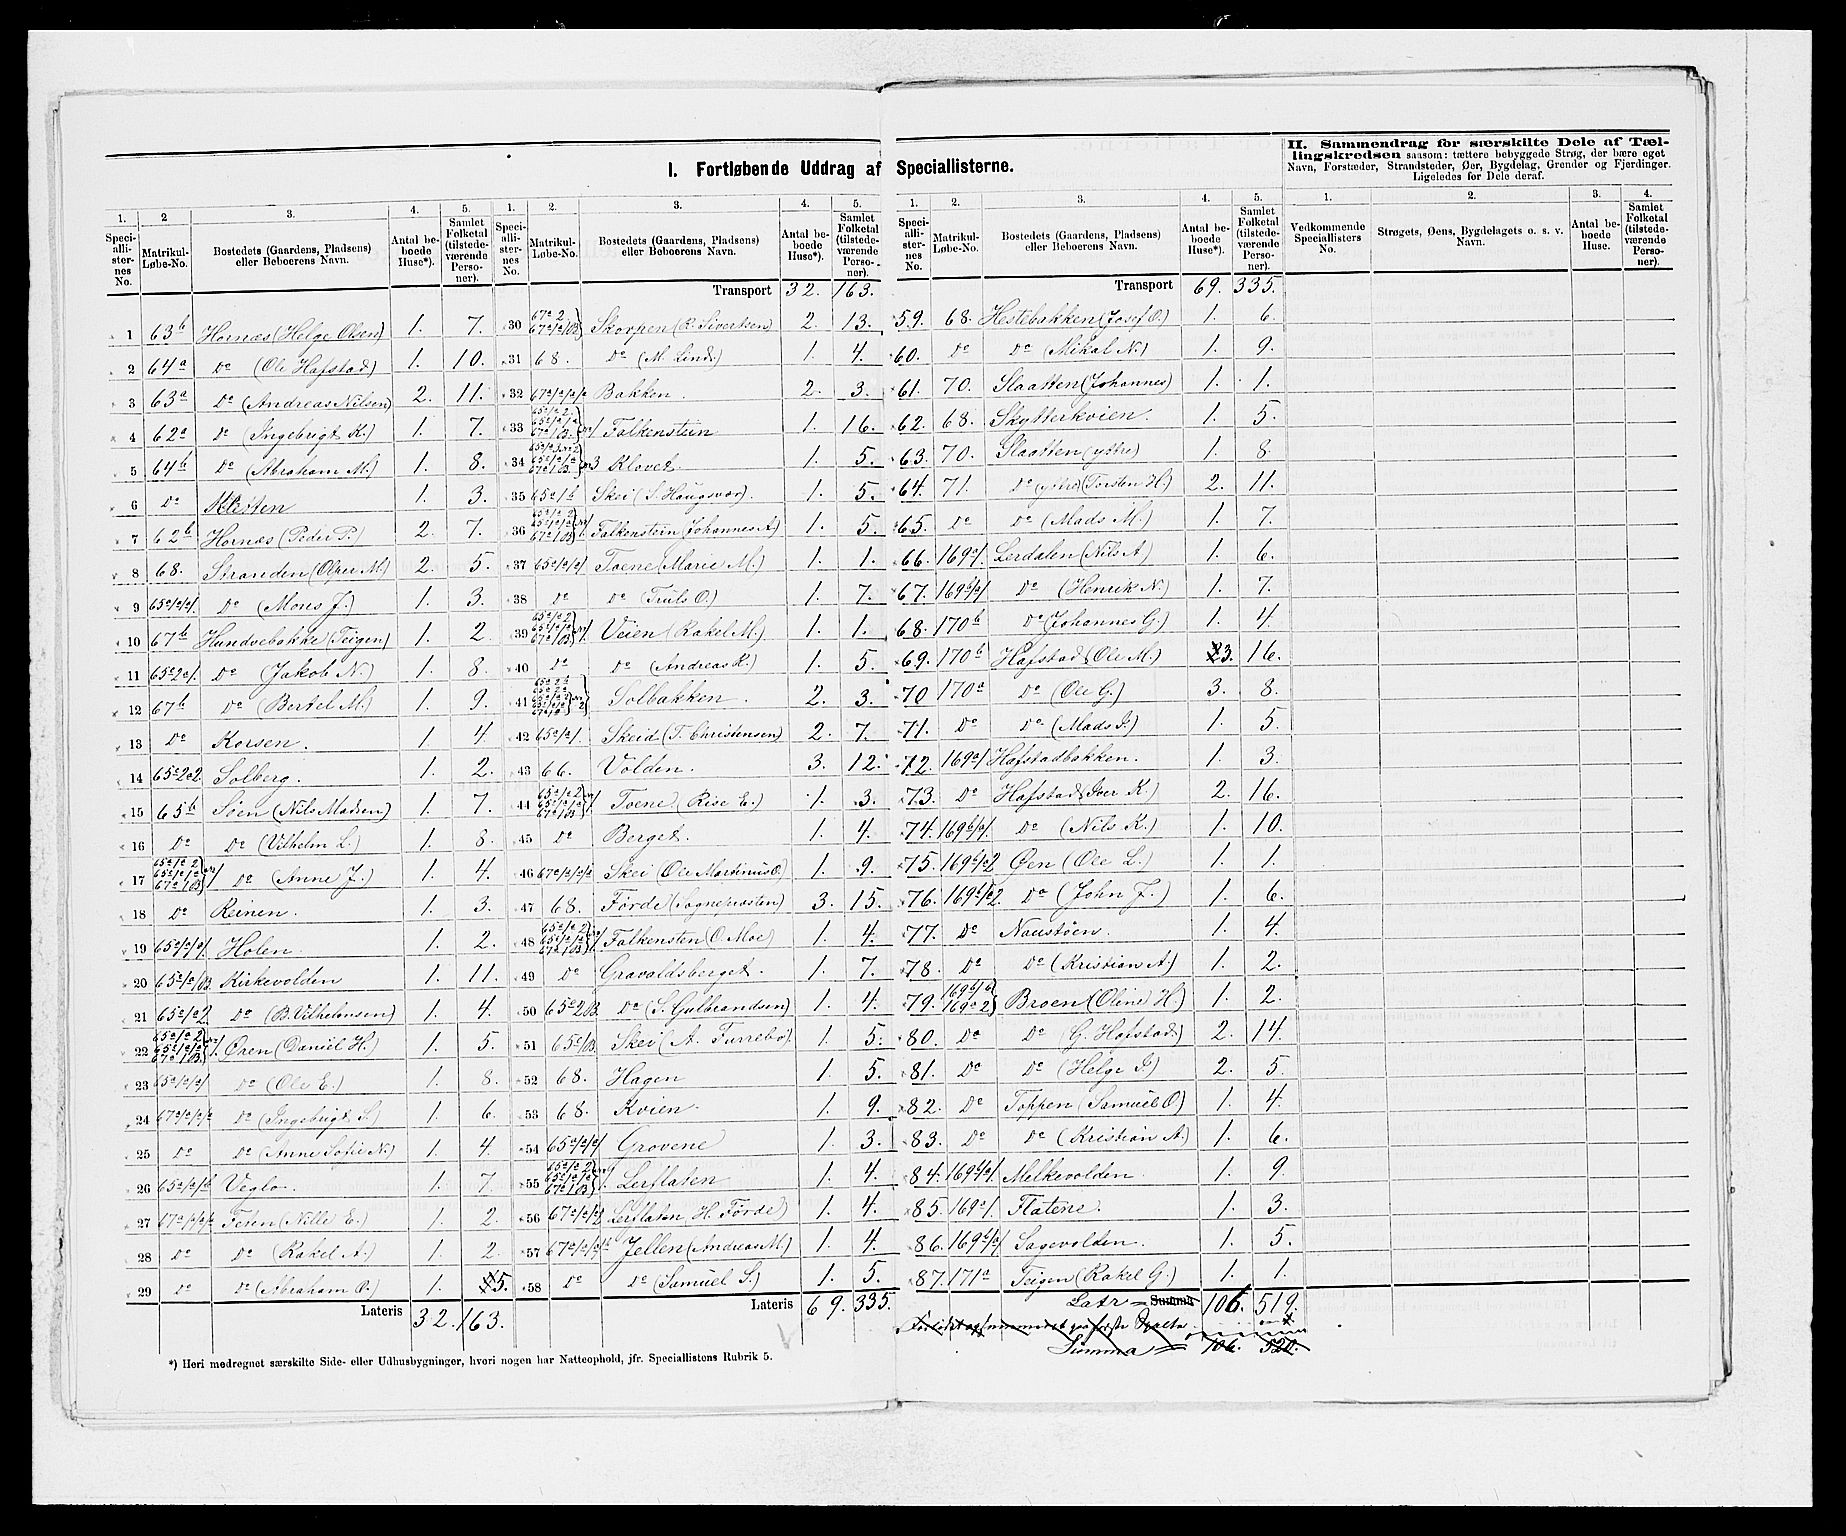 I. Fortløbende Uddrag af Speciallisterne.
II. Sammendrag for særskilte Dele af Tællingskredsen saasom: tættere bebyggede Strøg, der bære eget
Navn, Forstæder, Strandsteder, Øer, Bygdelag, Grender og Fjerdinger.
Ligeledes for Dele deraf.
1. 2 3. 4. 5.
Speciallisternes No. Matrikul-Løbe-No. Bostedets (Gaardens, Pladsen) eller Beboerens Navn. Antal beboede Huse*). Samlet Folketal (tilstedeværende Personer).
1 63b Hornæs (Helge Olsen) 1. 7.
2 64a Do (Ole Hafstad) 1. 10.
3 63a Do (Andreas Nilsen) 2. 11.
4 62a Do (Ingebrigt K.) 1. 7.
5 64b Do (Abraham M.) 1. 8.
6 Do 1. 3.
7 62b Hornæs (Peder P.) 2. 7.
8 68. Stranden (Olper M.) 2. 5.
9 65a/a/a/. Do (Mons J.) 1. 3.
10 67b Hundvebakke (Teigen) 1. 2.
11 65a2a/. Do (Jakob N.) 1. 8.
12 67b Do (Bertel M.) 1. 9.
13 Do Korsen. 1. 4.
14 65a2a2. Solberg. 1. 2.
15 65b Søen (Nils Madsen) 1. 7.
16 Do Do (Vilhelm L.) 1. 8.
17 65a/a2 65a/a/a 67a/B. Do (Anne J.) 1. 4.
18 Do Reinen. 1. 3.
19 65a/a/a/. Holen. 1. 2.
20 65a/a/B. Kirkevolden 1. 11.
21 65a/a2. Do (B. Vilhelmsen) 1. 4.
22 65a/a2 65a/a/a 67a/B. Øren (Daniel H.) 1. 5.
23 65a/a/a/ Do (Ole E.) 1. 8.
24 67a/a/a/a Do (Ingebrigt S.) 1. 6.
25 Do Do (Anne Sofie N.) 1. 4.
26 65a/a/b Veglo. 1. 7.
27 67a/a/a/a Feten (Nille E.) 1. 2.
28 Do Do (Rakel A.) 1. 2.
29 Do Do (Abraham O.) 1. 5.
Lateris 32. 163.
*) Heri medregnet særskilte Side- eller Udhusbygninger, hvori nogen har Natteophold, jfr. Speciallistens Rubrik 5.
1. 2. 3. 4. 5.
Speciallisternes No. Matrikul-Løbe-No. Bostedets (Gaardens, Pladsen) eller Beboerens Navn. Antal beboede Huse*). Samlet Folketal (tilstedeværende Personer).
Transport 32. 163.
30 67a2 67a/a/B Skorpen (R. Sivertsen) 2. 13.
31 68. Do (M. Lind.) 1. 4.
32 67a/a/a/a Bakken. 2. 3.
33 65a/a2. 65a/a/a 67a/B. Falkenstein 1. 16.
34 Klovet. 1. 5.
35 65a1b Skei (S. Haugsvær). 1. 5.
36 65a/a2 65a/a/a 67a/B. Falkenstein (Johannes A.) 1. 5.
37 65a/a/a/ Toene (Marie M.) 1. 1.
38 Do Do (Truls O.) 1. 7.
39 65a/a2 65a/a/a 67a/B. Veien (Rakel M.) 1. 1.
40 Do Do (Andreas K.) 1. 5.
41 Solbakken. 2. 3.
42 65a/a/. Skeid (T. Christensen) 2. 7.
43 66. Volden. 3. 12.
44 65a/a2. 65a/a/a 67a/B. Toene (Rise E.) 1. 3.
45 Do Berget. 1. 4.
46 67a/a/a/a Skei (Ole Martinus O.) 1. 9.
47 68. Förde (Sogneprosten) 3. 15.
48 65a/a2 65a/a/a 67a/B. Falkensten (O. Moe) 1. 4.
49 Do Gravaldsberget. 1. 7.
50 65a2B. Do (S. Gulbrandsen) 1. 4.
51 65a/B. Skei (A. Furrebø). 1. 5.
52 68. Hagen 1. 5.
53 68. Kvien. 1. 9.
54 65a/a/a/ Grovene 1. 3.
55 65a/a2. 65a/a/a 67a/B. Lerflaten 1. 4.
56 67a/a/a2 Lerflaten H. Förde) 1. 4.
57 67a/a/a/b Jellen (Andreas M.) 1. 4.
58 Do Do (Samuel S.) 1. 5.
Lateris 69. 335.
1. 2. 3. 4. 5.
Speciallisternes No. Matrikul-Løbe-No. Bostedets (Gaardens, Pladsen) eller Beboerens Navn. Antal beboede Huse*). Samlet Folketal (tilstedeværende Personer).
Transport 69. 335.
59. 68. Hestebakken (Josef O.) 1. 6.
60. Do Do (Mikal N.) 1. 9.
61. 70. Slaatten (Johannes) 1. 1.
62. 68. Skytterkvien. 1. 5.
63. 70. Slaatten (ystre) 1. 8.
64. 71. Do (ystre) (Torsten H.) 2. 11.
65. Do Do (Mads M.) 1. 7.
66. 169a/. Lerdalen (Nils A) 1. 6.
67. 169b/a/ Do (Henrik N.) 1. 7.
68. 170b Do (Johannes G.) 1. 4.
69. 170b Hafstad (Ole M.) 3. 16.
70 170a Do (Ole G.) 3. 8.
71. Do Do (Mads I.) 1. 5.
72. 169a/ Hafstadbakken. 1. 3.
73. Do Hafstad (Iver K.) 2. 16.
74. 169b/a/. Do (Nils K.) 1. 10.
75. 169b/a2 Øen (Ole L.) 1. 1.
76. 169b/a2. Do (John J.) 1. 6.
77. Do Naustöen. 1. 4.
78. Do Do (Kristian A.) 1. 2.
79. 169b/b 169a2 Broen (Oline H.) 1. 2.
80. Do Do G. Hafstad) 2. 14.
81. Do Do (Helge I.) 2. 5.
82. Do Toppen (Samuel O) 1. 4.
83. Do Do (Kristian A.) 1. 6.
84. 169b/a/. Melkevolden. 1. 9.
85. 169a/. Flatene. 1. 3.
86. 169b/a/ Sagevolden. 1. 5.
87. 171a Teigen (Rakel G.) 1. 1.
Latr = Summa 106. 519.
Summa = 106. 520.
1. 2. 3. 4.
Vedkommende Speciallisters No. Strøgets, Øens, Bygdelagets o. s. v. Navn. Antal beboede Huse. Samlet Folketal (tilstedeværende Personer).